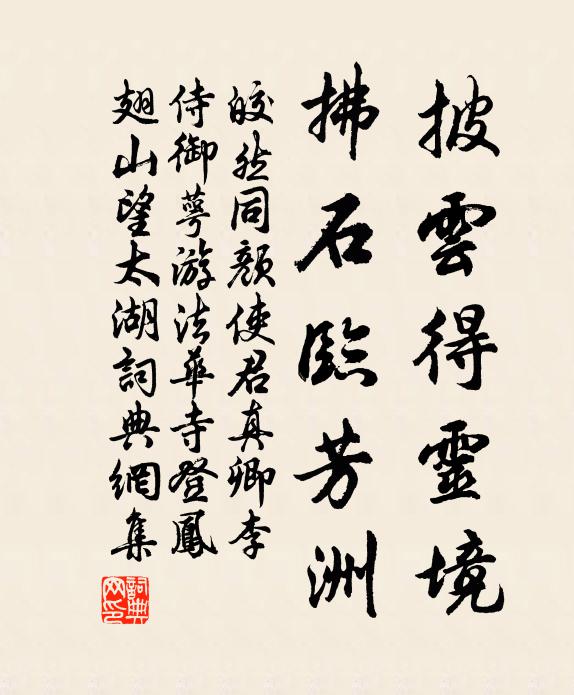 披雲得靈境
拂石臨芳洲
皎然同顏使君真卿李
侍御萼游法華寺登鳳
翅山望太湖詞典網集
詞典
网印